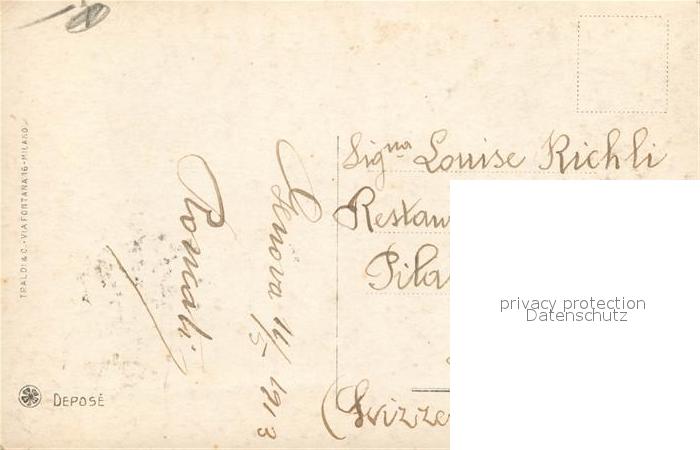 TRALDI & C. - VIA FONTANA 16 - MILANO
DEPOSÉ
Genova 16/5 1913
Sigṇa Louise Richli
Restau
Pila
(Svizze
privacy protection
Datenschutz